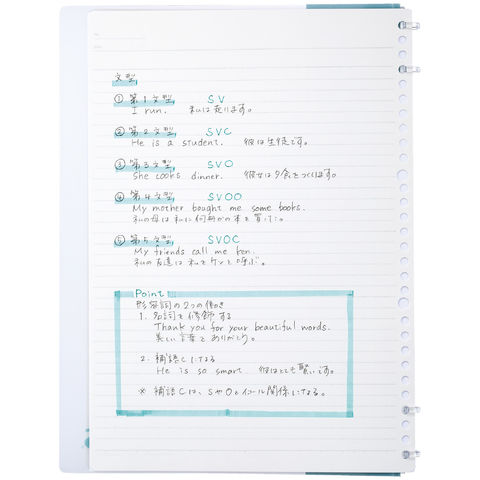 文型
① 第1文型 SV
I run. 私は走ります。
② 第2文型 SVC
He is a student. 彼は生徒です。
③ 第3文型 SVO
She cooks dinner. 彼女は夕食をつくります。
④ 第4文型 SVOO
My mother bought me some books.
私の母は私に何冊かの本を買った。
⑤ 第5文型 SVOC
My friends call me Ken.
私の友達は私をケンと呼ぶ。
Point
形容詞の2つの働き
1. 名詞を修飾する
Thank you for your beautiful words.
美しい言葉をありがとう。
2. 補語Cになる
He is so smart 彼はとても賢いです。
※ 補語Cは、SやOとイコール関係になる。